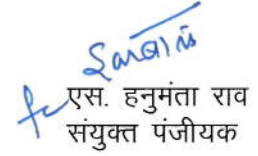 एस. हनुमंता राव
संयुक्त पंजीयक